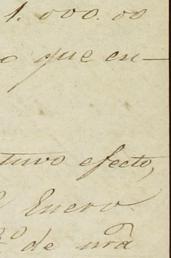 1.000.00
o que en—
tuvo efecto,
Enero
de